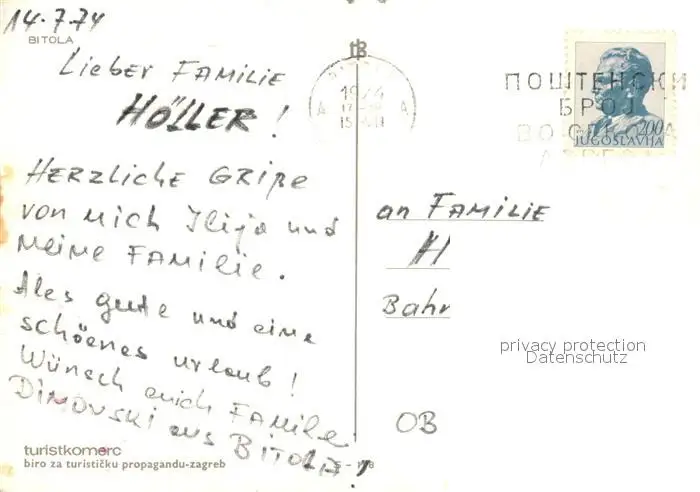 14.7.74
BITOLA
LIEBER FAMILIE
HÖLLER!
HERZLICHE GRIPE
von mich Ilija und
MEINE FAMILIE.
Ales gute und eine
schöenes urlaub!
Wünsch euich FAMILIE
DIMOVSKI aus BITOLA!
turistkomerc
biro za turističku propagandu-zagreb
1974
ПОШТЕНСКИ
БРОЈ
200
JUGOSLAVIJA
an FAMILIE
H
Bahr
privacy protection
Datenschutz
OB